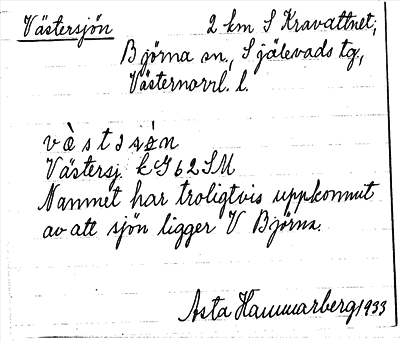 Västersjön 2 km S Kravattnet,
Björna sn., Själevads tg.,
Västernorrl. l.
vä̀stɜsjøn
Västersj. kG62SM
Namnet har troligtvis uppkommit
av att sjön ligger V Björna.
Asta Hammarberg 1933